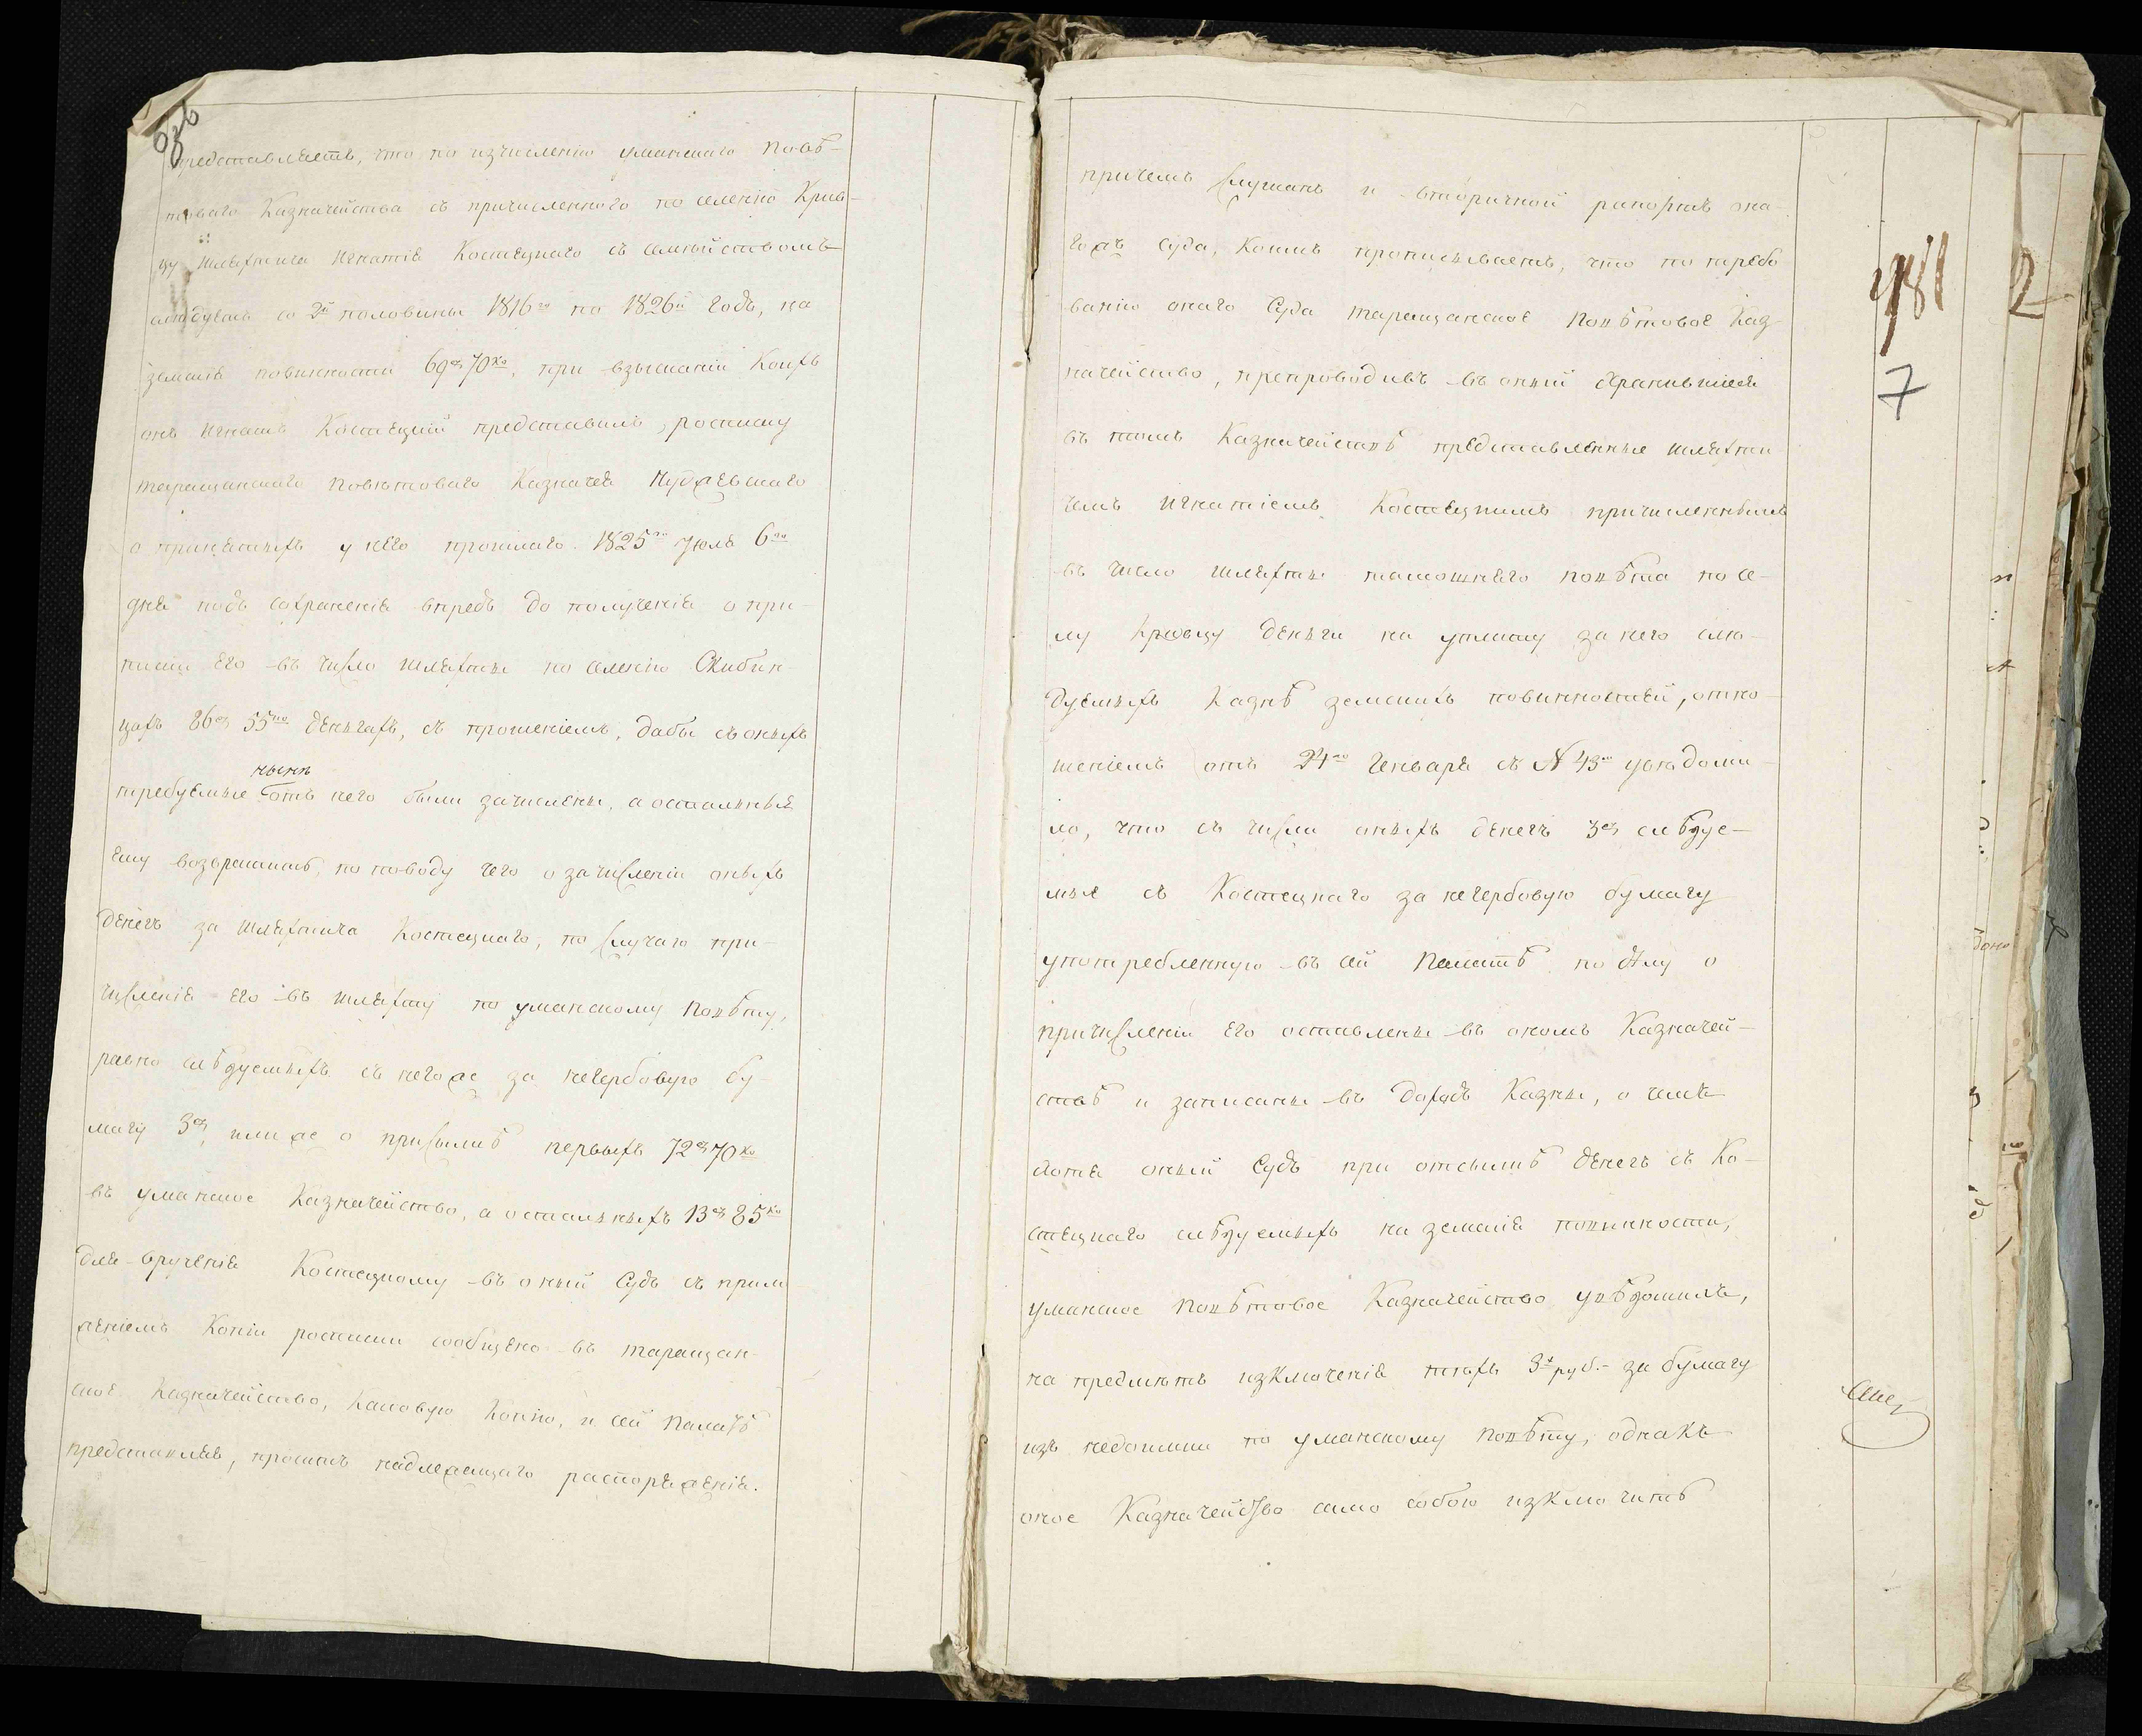 представляетъ, что по изчисленію уманскаго повѣ-
товаго Казначейства съ причисленного по селенію Крив-
цу шляхтича Игнатія Костецкаго съ семѣйствомъ
слѣдуетъ со 2й половины 1816го по 1826й годъ, на
земскія повинности 69 р 70 ко, при взысканіи коихъ
онъ Игнатъ Костецкій представилъ, росписку
таращанскаго повѣтоваго Казначея
о принятыхъ у него прошлаго 1825го Іюля 6го
дня подъ сохраненія впредь до полученія о при-
писки его въ число шляхты по селенію Скибин-
цахъ 86 р 55 ко деньгахъ, съ прошеніемъ, дабы съ оныхъ
требуемые нынѣ отъ него были зачислены, а остальныя
ему возвратить, по поводу чего о зачисленіи оныхъ
денегъ за шляхтича Костецкаго, по случаю при-
численія его въ шляхту по уманскому повѣту,
равно слѣдуемыхъ съ него же за негербовую бу-
магу 3 р, или же о присылкѣ первыхъ 72 р 70 ко
въ уманское Казначейство, а остальныхъ 13 р 85 ко
для врученія Костецкому въ оный Судъ съ прило-
женіемъ Копіи росписки сообщено въ таращан-
ское Казначейство, каковую Копію, и сей Палатѣ
представляя, проситъ надлежащаго распоряженія.
причемъ слушанъ и вторичной рапортъ она-
гожъ Суда, коимъ прописываетъ, что по требо
ванію онаго Суда таращанское повѣтовое Каз
начейство, препроводивъ въ оный хранившіеся
въ томъ Казначействѣ представленные шляхти
чемъ Игнатіемъ Костецкимъ причисленнымъ
въ число шляхты тамошняго повѣта по се-
лу Кривцу деньги на уплату за него слѣ-
дуемыхъ Казнѣ земскихъ повинностей, отно-
шеніемъ отъ 24го Генваря съ N 43м увѣдоми-
ло, что съ числа оныхъ денегъ 3 р слѣдуе-
мые съ Костецкаго за негербовую бумагу
употребленную въ сей Палатѣ по дѣлу о
причисленіи его оставлены въ ономъ Казначей-
ствѣ и записаны въ доходъ Казны, о чемъ
хотя оный Судъ при отсылкѣ денегъ съ Ко-
стецкаго слѣдуемыхъ на земскія повинности,
уманское повѣтовое Казначейство увѣдомилъ,
на предметъ изключенія тѣхъ 3х руб. за бумагу
изъ недоимки по уманскому повѣту, однакъ
оное Казначейство само собою изключить
7
2